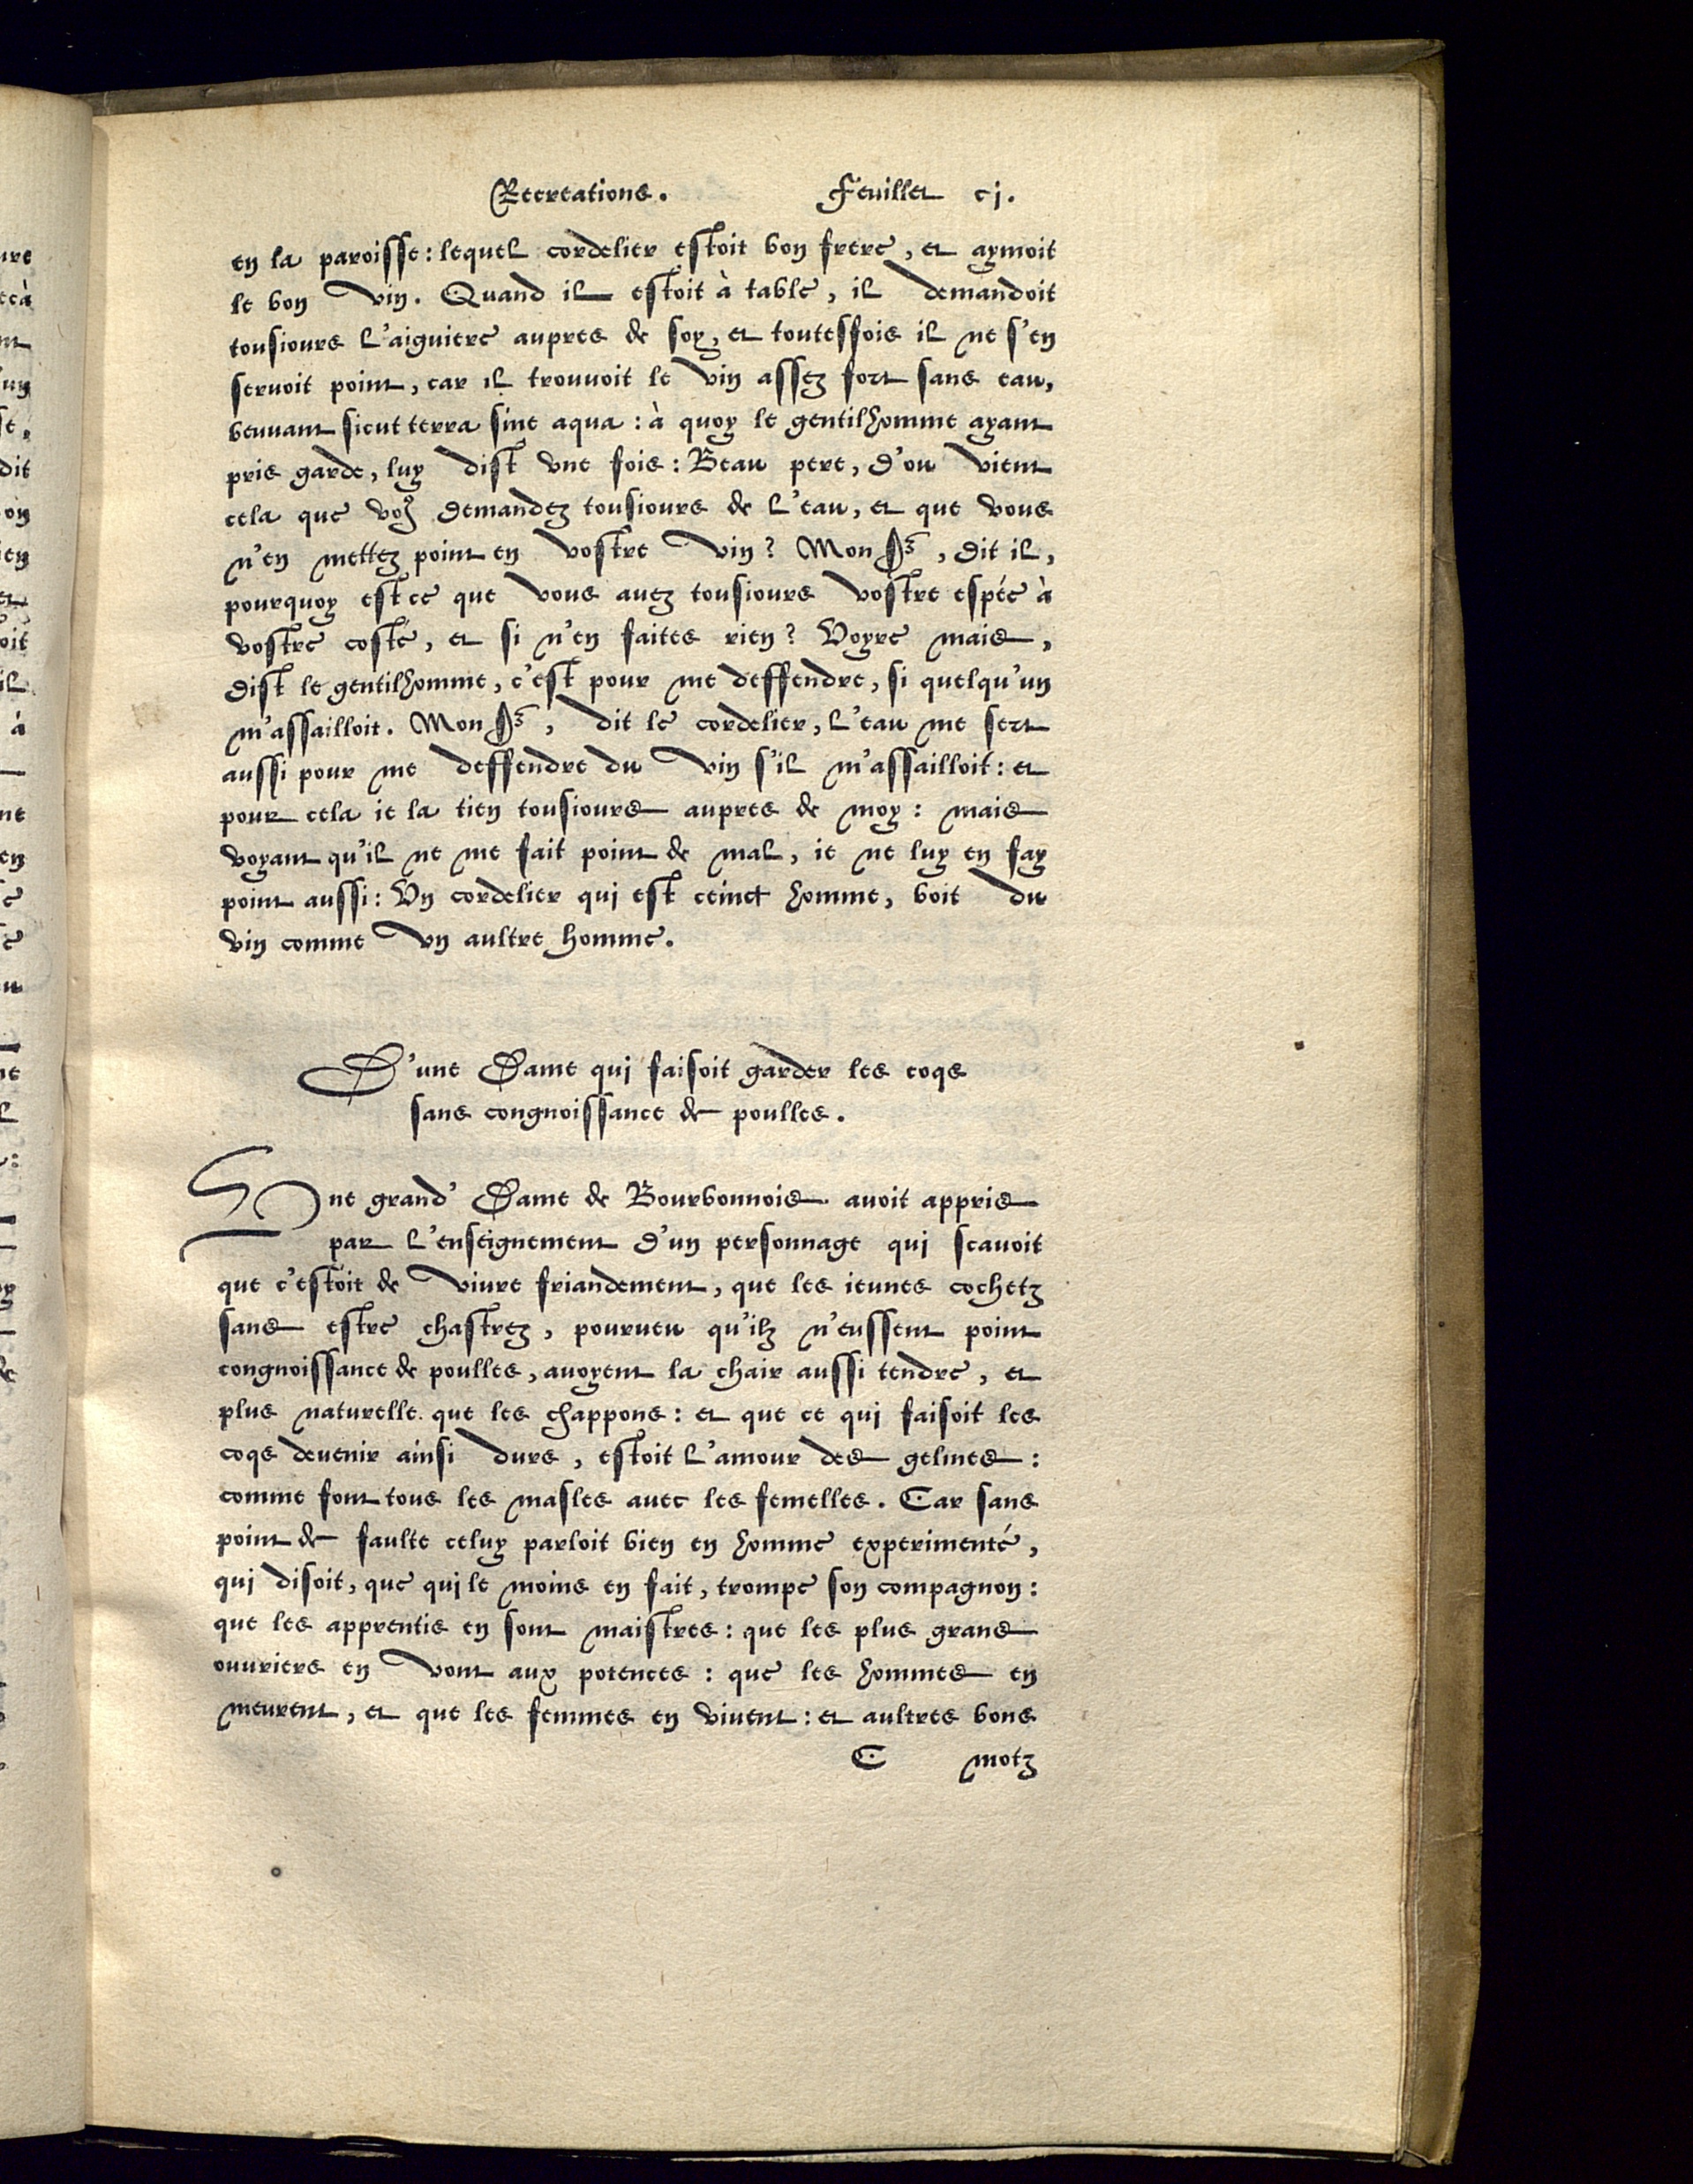 Recreations. Feuillet cj.
en la paroisse: lequel cordelier estoit bon frere, et aymoit
le bon vin. Quand il estoit à table, il demandoit
tousiours l'aiguiere aupres de soy, et toutesfois il ne s'en
seruoit point, car il trouuoit le vin assez fort sans eau,
beuuant sicut terra sine aqua: à quoy le gentilhomme ayant
pris garde, luy dist vne fois: Beau pere, d'ou vient
cela que voꝰ demandez tousiours de l'eau, et que vous
n'en mettez point en vostre vin? Mon Sr, dit il,
pourquoy est ce que vous auez tousiours vostre espée à
vostre costé, et si n'en faites rien? Voyre mais,
dist le gentilhomme, c'est pour me deffendre, si quelqu'un
m'assailloit. Mon Sr, dit le cordelier, l'eau me sert
aussi pour me deffendre du vin s'il m'assailloit: et
pour cela ie la tien tousiours aupres de moy: mais
voyant qu'il ne me fait point de mal, ie ne luy en fay
point aussi: Vn cordelier qui est ceinct homme, boit du
vin comme vn aultre homme.
D'une Dame qui faisoit garder les coqs
sans congnoissance de poulles.
Vne grand' Dame de Bourbonnois auoit appris
par l'enseignement d'un personnage qui scauoit
que c'estoit de viure friandement, que les ieunes cochetz
sans estre chastrez, pourueu qu'ilz n'eussent point
congnoissance de poulles, auoyent la chair aussi tendre, et
plus naturelle que les chappons: et que ce qui faisoit les
coqs deuenir ainsi durs, estoit l'amour des gelines:
comme font tous les masles auec les femelles. Car sans
point de faulte celuy parloit bien en homme experimenté,
qui disoit, que qui le moins en fait, trompe son compagnon:
que les apprentis en sont maistres: que les plus grans
ouuriers en vont aux potences: que les hommes en
meurent, et que les femmes en viuent: et aultres bons
C motz